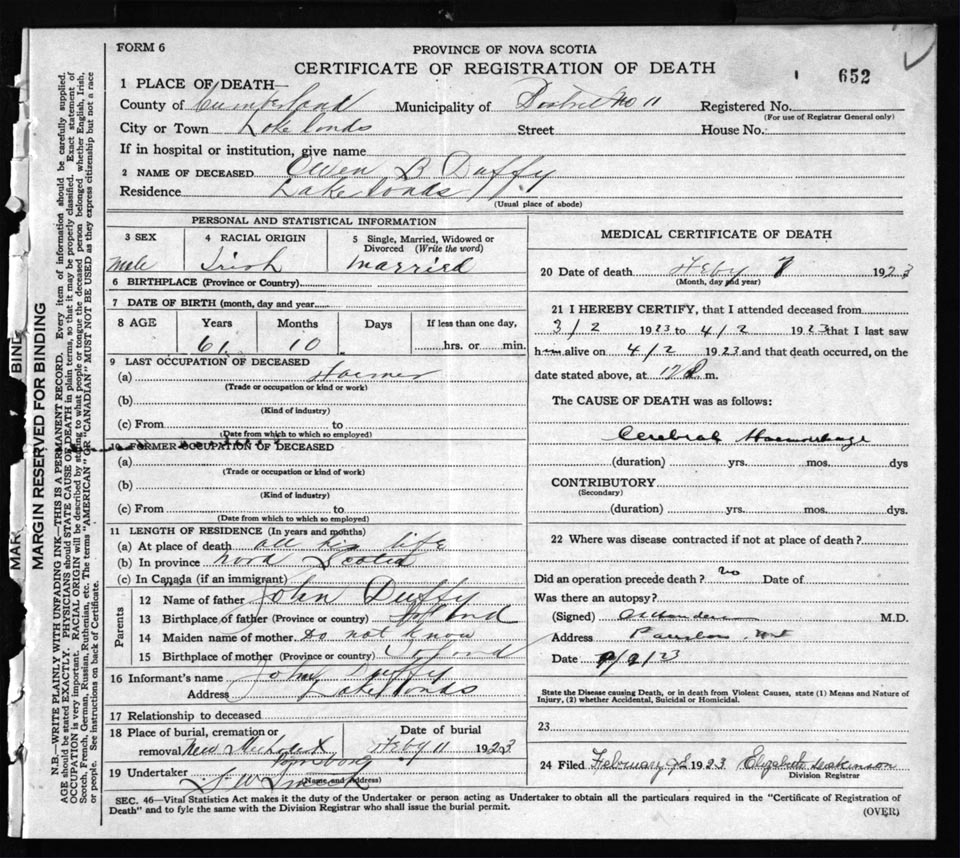 FORM 6
PROVINCE OF NOVA SCOTIA
CERTIFICATE OF REGISTRATION OF DEATH
652
1 PLACE OF DEATH—
County of Cumberland Municipality of District No 11 Registered No.
(For use of Registrar General only)
City or Town Lakelands Street House No.
If in hospital or institution, give name
2 NAME OF DECEASED Owen B Duffy
Residence Lakelands
(Usual place of abode)
PERSONAL AND STATISTICAL INFORMATION
3 SEX 4 RACIAL ORIGIN 5 Single, Married, Widowed or Divorced (Write the word)
Male Irish Married
6 BIRTHPLACE (Province or Country)
7 DATE OF BIRTH (month, day and year)
8 AGE Years Months Days If less than one day,
61 10 hrs. or min.
9 LAST OCCUPATION OF DECEASED
(a) Farmer
(Trade or occupation or kind or work)
(b)
(Kind of industry)
(c) From to
(Date from which to which so employed)
10 FORMER OCCUPATION OF DECEASED
(a)
(Trade or occupation or kind of work)
(b)
(Kind of industry)
(c) From to
(Date from which to which so employed)
11 LENGTH OF RESIDENCE (In years and months)
(a) At place of death all his life
(b) In province Nova Scotia
(c) In Canada (if an immigrant)
Parents
12 Name of father John Duffy
13 Birthplace of father (Province or country) Ireland
14 Maiden name of mother Do not know
15 Birthplace of mother (Province or country) Ireland
16 Informant's name John Duffy
Address Lakelands
17 Relationship to deceased
18 Place of burial, cremation or removal Date of burial
Parrsboro Feby 11 1923
19 Undertaker
(Name and Address)
MEDICAL CERTIFICATE OF DEATH
20 Date of death Feby 1923
(Month, day and year)
21 I HEREBY CERTIFY, that I attended deceased from
3/2 1923 to 4/2 1923 that I last saw
him alive on 4/2 1923 and that death occurred, on the
date stated above, at m.
The CAUSE OF DEATH was as follows:
Cerebral Haemorrhage
(duration) yrs. mos. dys
CONTRIBUTORY
(Secondary)
(duration) yrs. mos. dys.
22 Where was disease contracted if not at place of death?
Did an operation precede death? no Date of
Was there an autopsy?
(Signed) M.D.
Address
Date 9/2/23
State the Disease causing Death, or in death from Violent Causes, state (1) Means and Nature of
Injury, (2) whether Accidental, Suicidal or Homicidal.
23
24 Filed February 1923 Elizabeth
Division Registrar
SEC. 46—Vital Statistics Act makes it the duty of the Undertaker or person acting as Undertaker to obtain all the particulars required in the "Certificate of Registration of
Death" and to fyle the same with the Division Registrar who shall issue the burial permit.
(OVER)
MARGIN RESERVED FOR BINDING
N.B.—WRITE PLAINLY WITH UNFADING INK—THIS IS A PERMANENT RECORD. Every item of information should be carefully supplied.
AGE should be stated EXACTLY. PHYSICIANS should STATE CAUSE OF DEATH in plain terms, so that it may be properly classified. Exact statement of
OCCUPATION is very important. RACIAL ORIGIN will be described by stating to what people or tongue the deceased person belonged whether English, Irish,
Scotch, French, German, Russian, Ruthenian, etc. The terms "AMERICAN" OR "CANADIAN" MUST NOT BE USED as they express citizenship but not a race
or people. See instructions on back of Certificate.